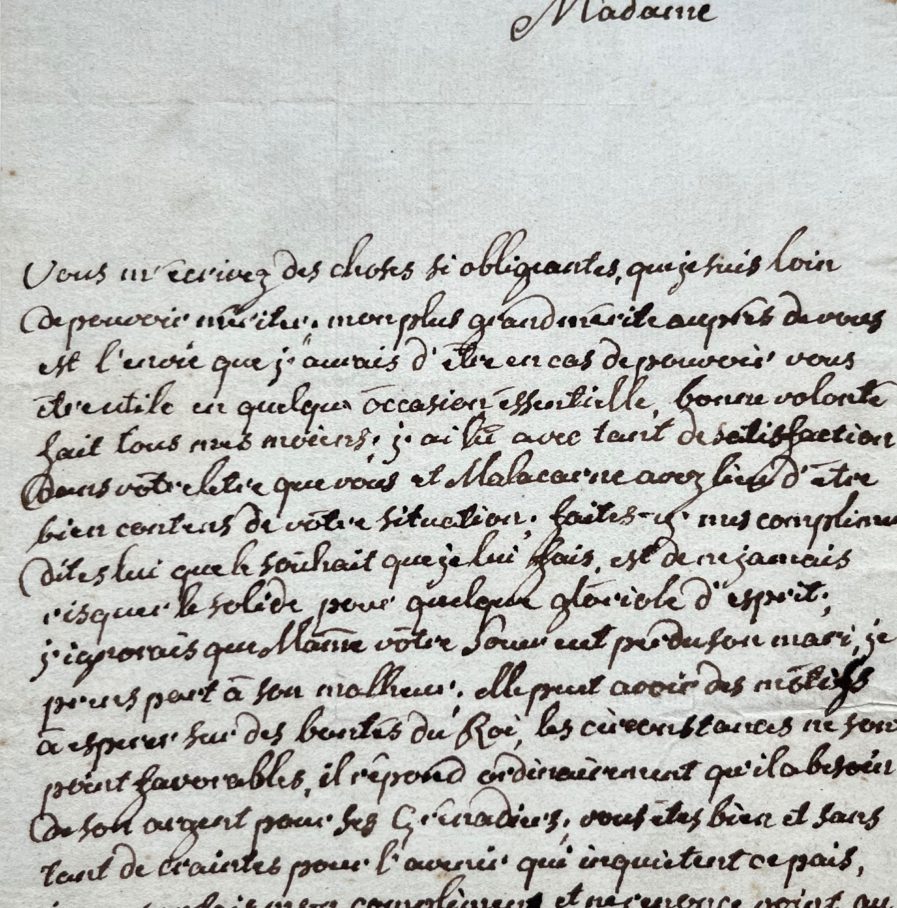 Madame
Vous m'écrivez des choses si obligeantes, que je suis loin
de pouvoir mériter. mon plus grand mérite auprès de vous
est l'envie que j'aurais d'être en cas de pouvoir vous
être utile en quelque occasion éssentielle, bonne volonté
fait tous mes moiens; j'ai lû avec tant de satisfaction
dans vôtre letre que vous et Malacarne avez lieu d'être
bien contens de vôtre situation; faites mes complimens
dites lui que le soûhait que je lui fais, est de ne jamais
risquer le solide pour quelque glôriole d'esprit;
j'ignorais que Mãme vôtre Soeur eut perdu son mari, je
prens part à son malheur; elle peut avoir des môtifs
à esperer sur des bontés du Roi, les circonstances ne son
point favorables, il rêpond ordinairement qu'il a besoin
de son argent pour ses Grênadiers; vous étes bien et sans
tant de craintes pour l'avenir qui inquietent ce païs,
mon compliment et ne point au